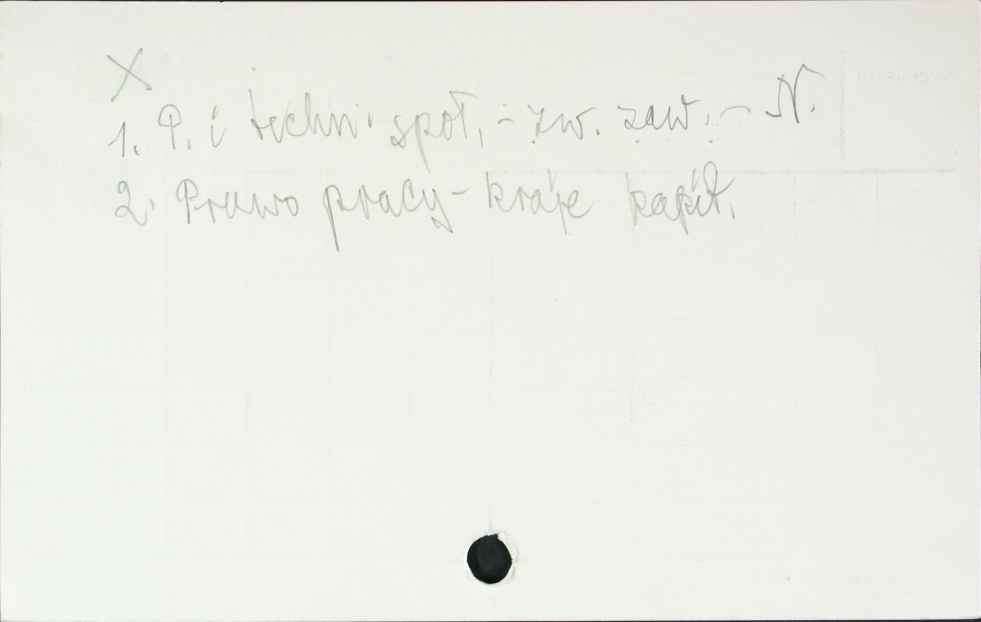 X
1. P. i techn. społ. - zw. zaw. - N.
2. Prawo pracy - kraje kapit.